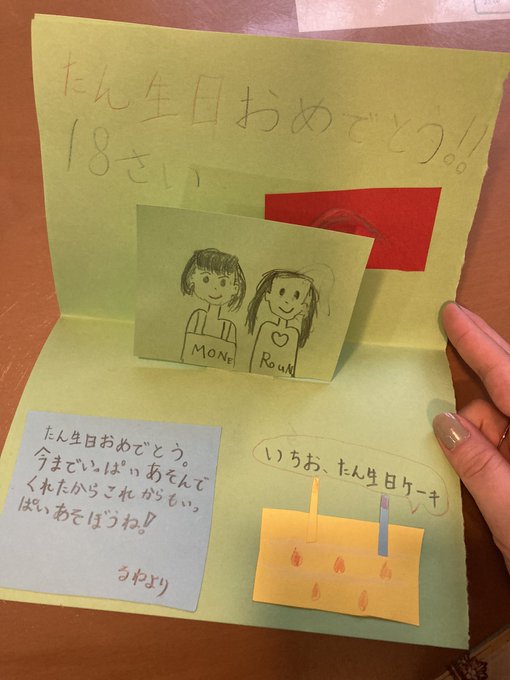 たん生日おめでとう!!
18さい
MONE
ROUN
たん生日おめでとう。
今までいっぱいあそんで
くれたからこれからもいっ
ぱいあそぼうね!
るねより
いちお、たん生日ケーキ